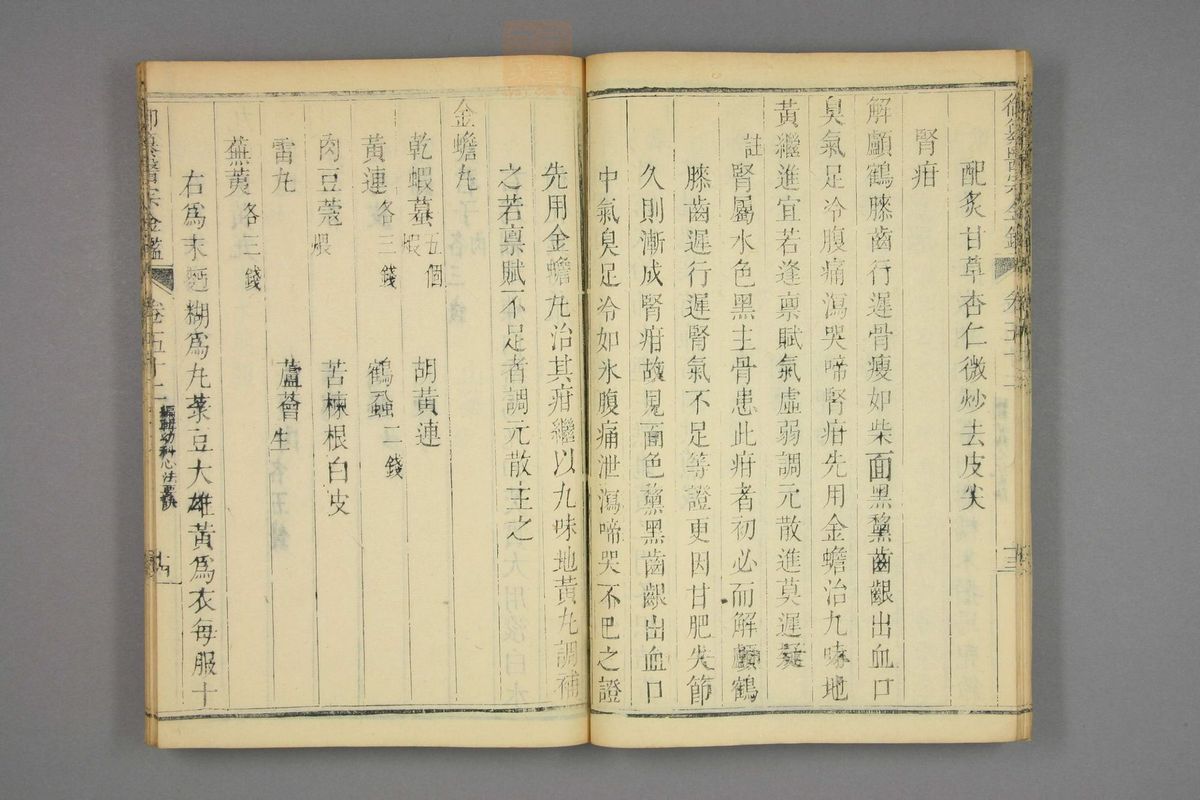 配炙甘草杏仁微炒去皮尖
腎疳
解顱鶴膝齒行遲骨瘦如柴面黑黧齒齦出血口
臭氣足冷腹痛瀉哭啼腎疳先用金蟾治九味地
黃繼進宜若逢禀賦氣虛弱調元散進莫遲疑
註
腎屬水色黑主骨患此疳者初必而解顱鶴
膝齒遲行遲腎氣不足等證更因甘肥失節
久則漸成腎疳故見面色黧黑齒齦出血口
中氣臭足冷如氷腹痛泄瀉啼哭不已之證
先用金蟾丸治其疳繼以九味地黃丸調補
之若禀賦不足者調元散主之
金蟾丸
乾蝦蟇五個煆 胡黃連
黃連各三錢 鶴蝨二錢
肉豆蔻煨 苦楝根白皮
雷丸 蘆薈生
蕪荑各三錢
右爲末麪糊爲丸菉豆大雄黃爲衣每服十
御纂醫宗金鑑 卷五十二 編輯幼科心法要訣